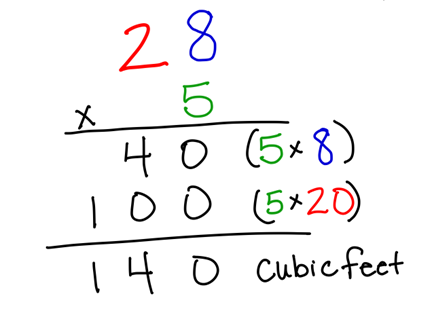 28
× 5
40 (5×8)
100 (5×20)
140 cubic feet